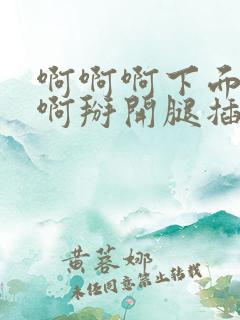 啊啊啊下面
啊掰開腿插
黄蓉娜
未经同意禁止转载